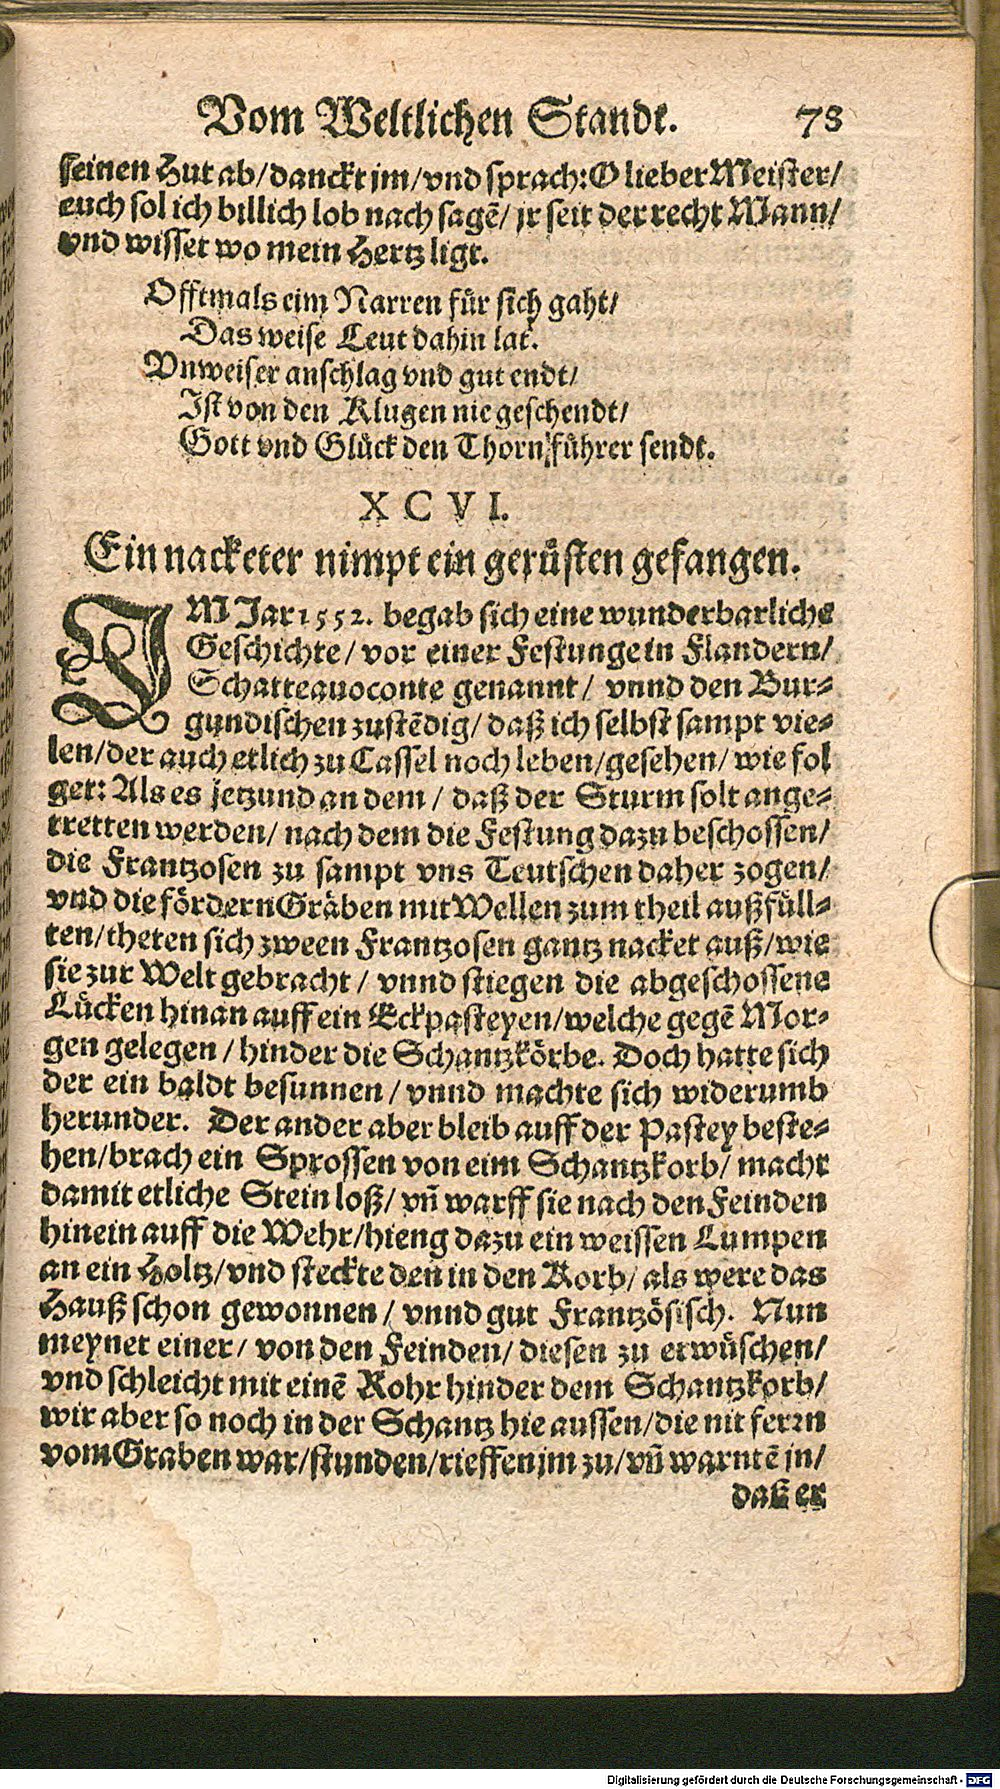 Vom Weltlichen Stande. 73
seinen Hut ab/danckt jm/vnd sprach: O lieber Meister/
euch sol ich billich lob nach sagẽ/ jr seit der recht Mann/
vnd wisset wo mein Hertz ligt.
Offtmals eim Narren für sich gaht/
Das weise Leut dahin lat.
Vnweiser anschlag vnd gut endt/
Ist von den Klugen nie geschendt/
Gott vnd Glück den Thorn führer sendt.
XCVI.
Ein nacketer nimpt ein gerüsten gefangen.
IM Jar 1552. begab sich eine wunderbarliche
Geschichte/ vor einer Festunge in Flandern/
Schatteauoconte genannt/ vnnd den Bur-
gundischen zustẽdig/ daß ich selbst sampt vie-
len/der auch etlich zu Cassel noch leben/gesehen/ wie fol
get: Als es jetzund an dem/ daß der Sturm solt ange-
tretten werden/ nach dem die Festung dazu beschossen/
die Frantzosen zu sampt vns Teutschen daher zogen/
vnd die fördern Gräben mit Wellen zum theil außfüll-
ten/theten sich zween Frantzosen gantz nacket auß/wie
sie zur Welt gebracht/ vnnd stiegen die abgeschossene
Lücken hinan auff ein Eckpasteyen/welche gegẽ Mor-
gen gelegen/hinder die Schantzkörbe. Doch hatte sich
der ein baldt besunnen/ vnnd machte sich widerumb
herunder. Der ander aber bleib auff der Pastey beste-
hen/brach ein Sprossen von eim Schantzkorb/ macht
damit etliche Stein loß/ vñ warff sie nach den Feinden
hinein auff die Wehr/hieng dazu ein weissen Lumpen
an ein Holtz/vnd steckte den in den Korb/ als were das
Hauß schon gewonnen/ vnnd gut Frantzösisch. Nun
meynet einer/ von den Feinden/ diesen zu erwüschen/
vnd schleicht mit einẽ Rohr hinder dem Schantzkorb/
wir aber so noch in der Schantz hie aussen/die nit ferrn
vom Graben war/stunden/rieffen jm zu/vñ warntẽ jn/
daß er
Digitalisierung gefördert durch die Deutsche Forschungsgemeinschaft - DFG